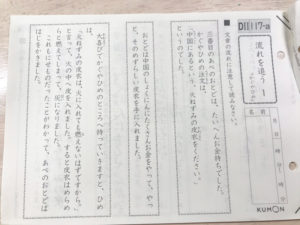 DⅡ117-a
流れを追う 1
名前
月 日
時 分
時 分
■ 文章の流れに注意して読みなさい。
三番目のあべのおとどは、たいへんお金持ちでした。
かぐやひめの注文は、
「中国にあるという、火ねずみの皮衣をください。」
というのでした。
おとどは中国のしょくにんにたくさんお金をやって、やっ
と、そのめずらしい皮衣を手に入れました。
大喜びでかぐやひめのところへ持っていきますと、ひめ
は、
「火ねずみの皮衣は、火に入れても燃えないはずですから。」
と言って、火の中へ皮衣を入れました。すると皮衣はめらめ
らと燃えてしまって、灰になりました。
これもにせものだったことがわかって、あべのおとどは
はじをかきました。
KUMON